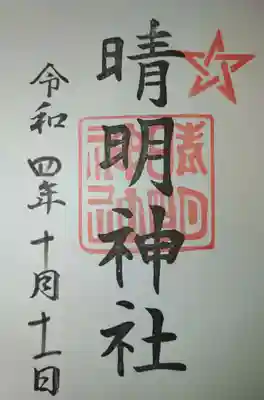 晴明神社
令和四年十月十一日